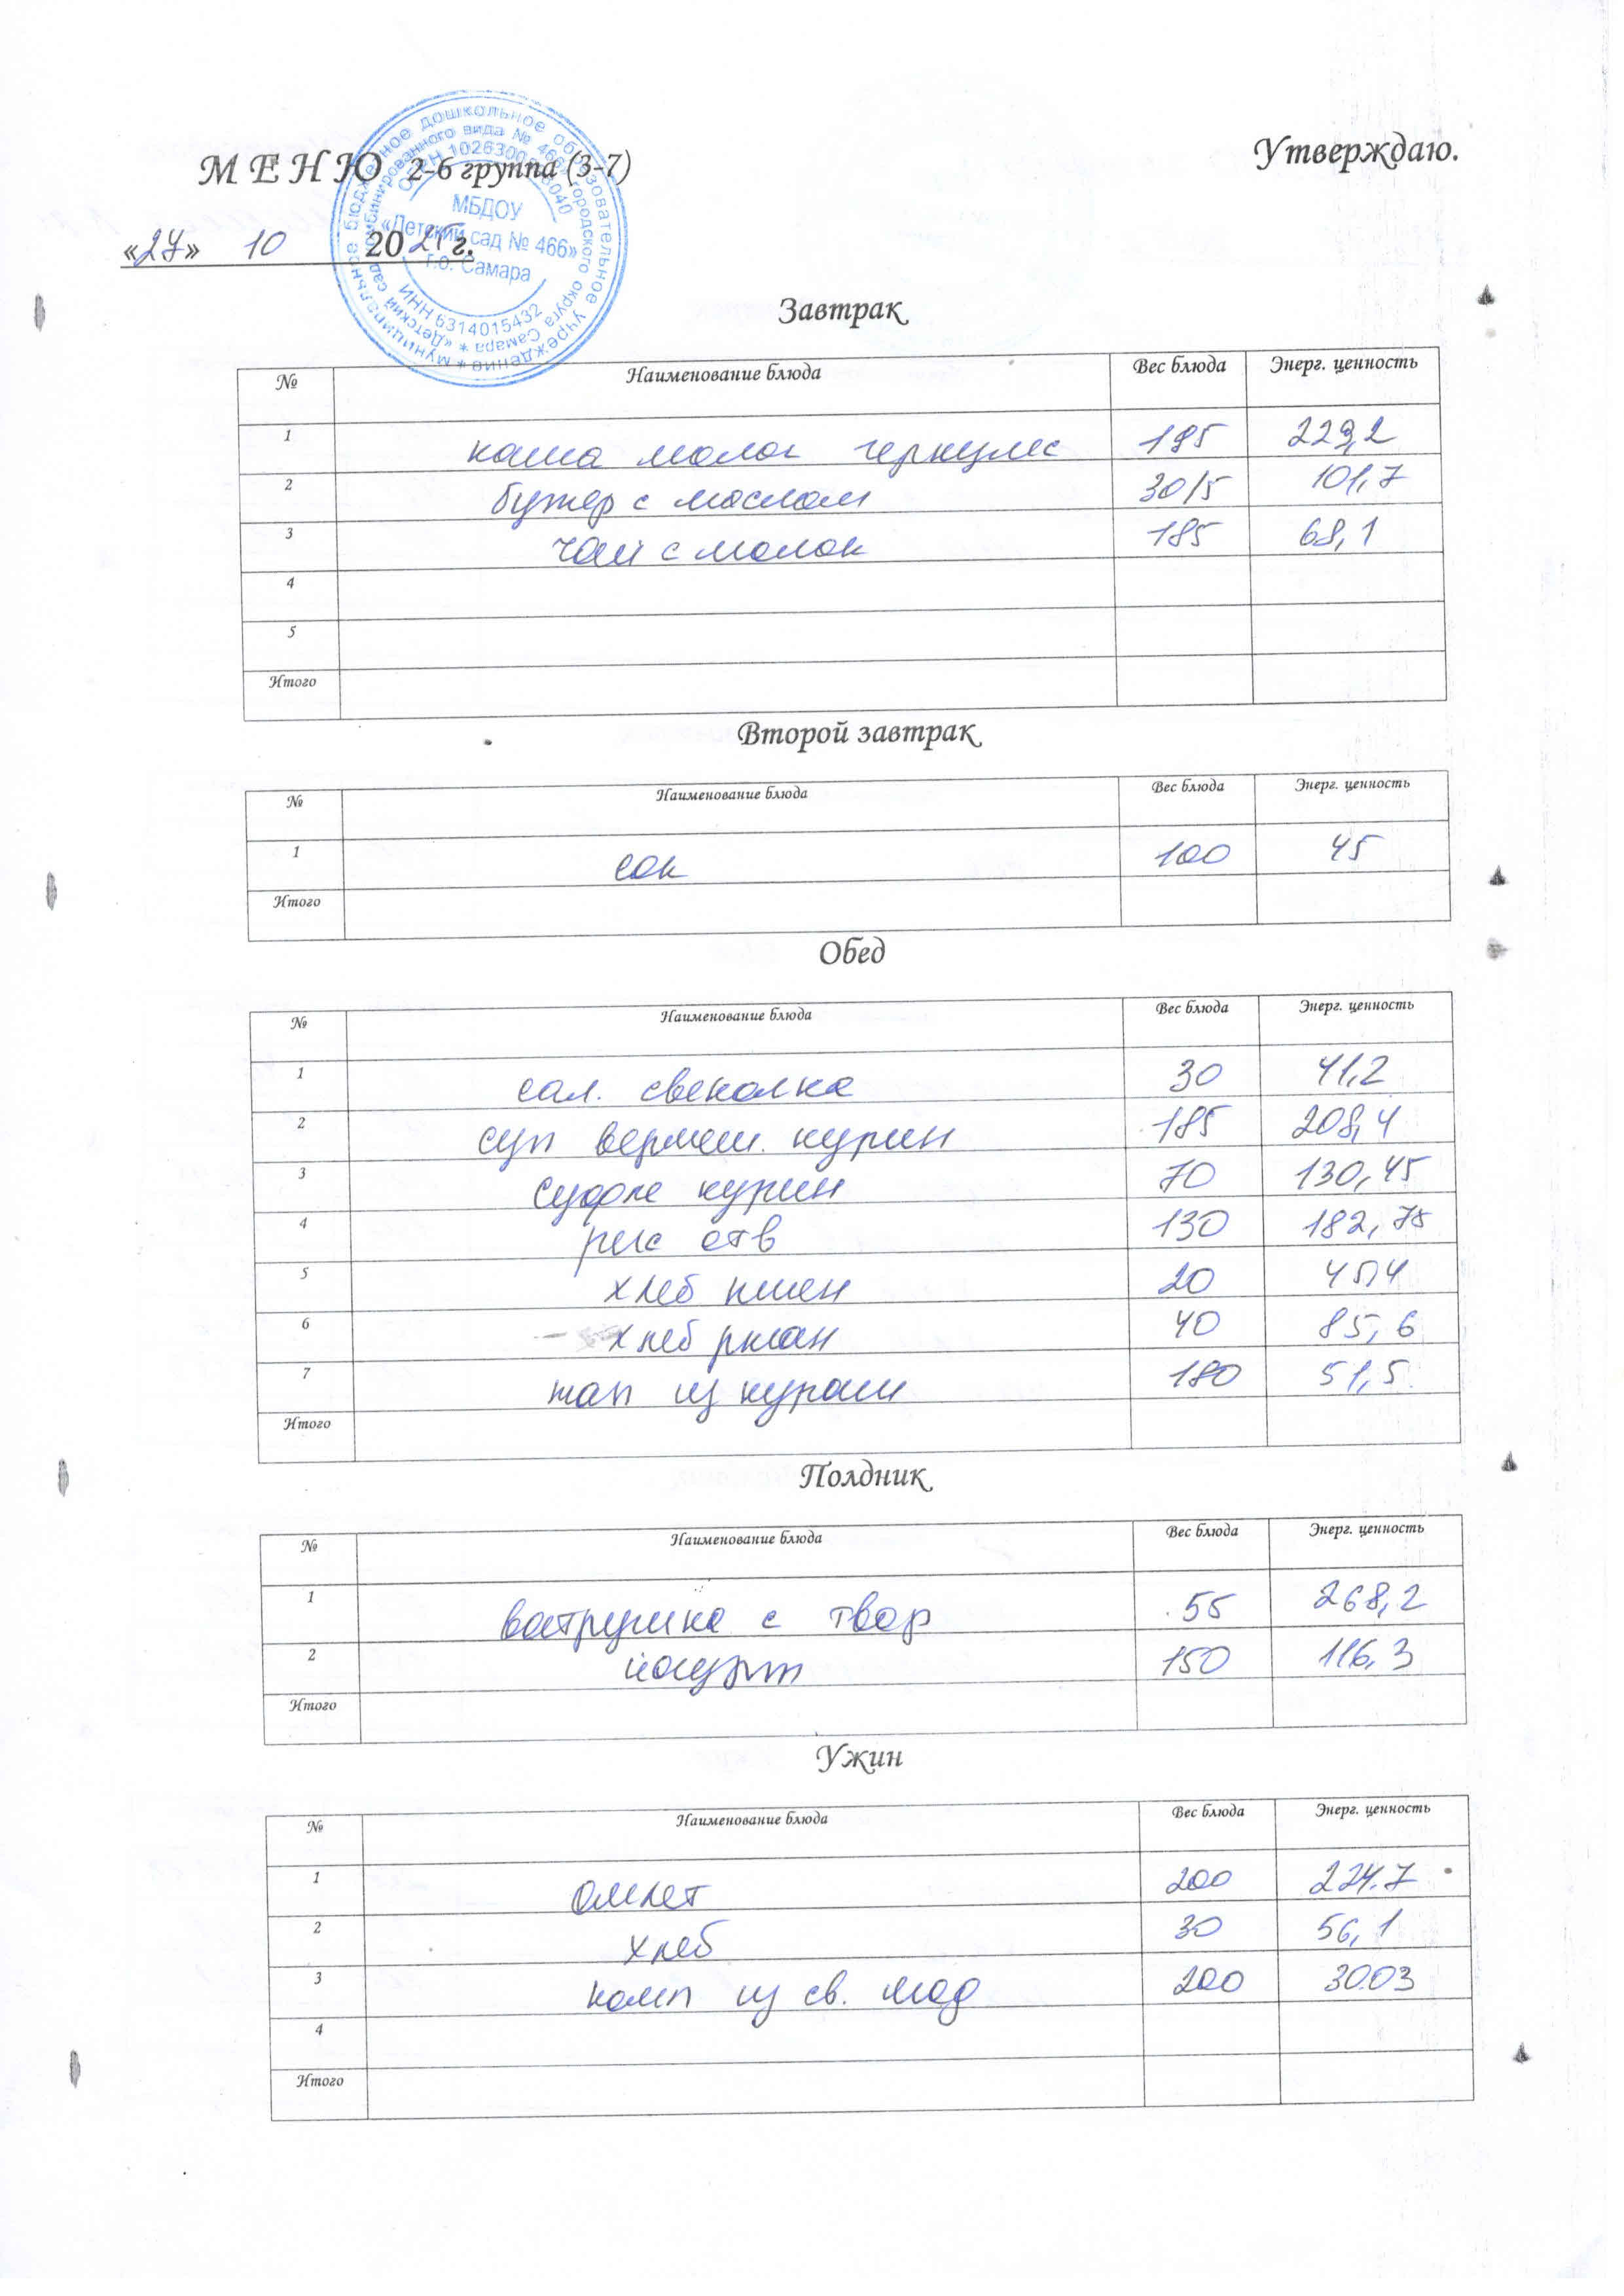 Утверждаю.
М Е Н Ю 2-6 группа (3-7)
«27» 10 2025 г.
муниципальное бюджетное дошкольное образовательное учреждение
«Детский сад комбинированного вида № 466» городского округа Самара
ОГРН
МБДОУ
«Детский сад № 466»
г.о. Самара
ИНН 6314015432
Завтрак
№ Наименование блюда Вес блюда Энерг. ценность
1 каша молоч геркулес 195 229,2
2 бутер с маслом 30/5 101,7
3 чай с молок 185 68,1
4
5
Итого
Второй завтрак
№ Наименование блюда Вес блюда Энерг. ценность
1 сок 100 45
Итого
Обед
№ Наименование блюда Вес блюда Энерг. ценность
1 сал. свеколка 30 41,2
2 суп вермеш. курин 185 208,4
3 суфле курин 70 130,45
4 рис отв 130 182,75
5 хлеб пшен 20 45,4
6 хлеб ржан 40 85,6
7 нап из кураги 180 51,5
Итого
Полдник
№ Наименование блюда Вес блюда Энерг. ценность
1 ватрушка с твор 55 268,2
2 йогурт 150 116,3
Итого
Ужин
№ Наименование блюда Вес блюда Энерг. ценность
1 омлет 200 224.7
2 хлеб 30 56,1
3 комп из св. 200 30.03
4
Итого